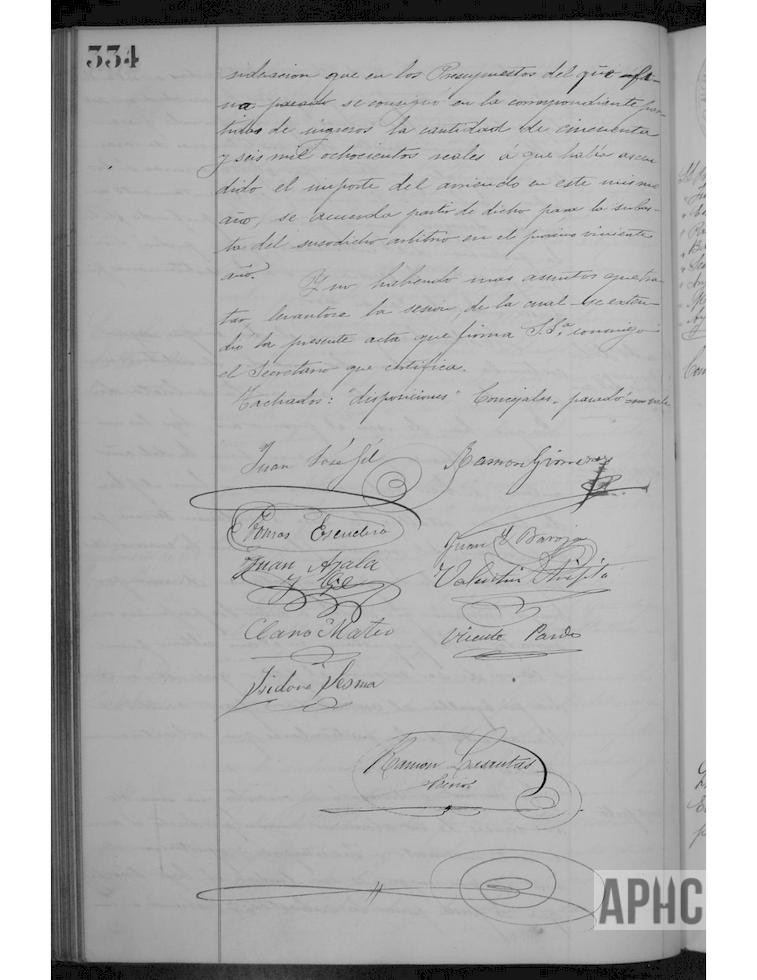 334
sideracion que en los Presupuestos del que fi-
na pasado se consignó en la correspondiente par-
tida de ingresos la cantidad de cincuenta
y seis mil ochocientos reales á que habia ascen
dido el importe del arriendo en este mismo
año, se acuerda partir de dicho para la subas-
ta del susodicho arbitrio en el proximo viviente
año.
Y no habiendo mas asuntos que tra
tar levantose la sesion, de la cual se exten-
dió la presente acta que firma S.Sª conmigo
el Secretario que certifica.
Tachados: "disposiciones" Concejales, pasado = no vale
Juan José Gil Ramon Gimenez
Tomas Escudero Juan Y Baroja
Juan Ayala
y Gil Valentin
Clano Mateo Vicente Pardo
Ysidoro Lesma
Ramon Lasantas
Srio
APHC